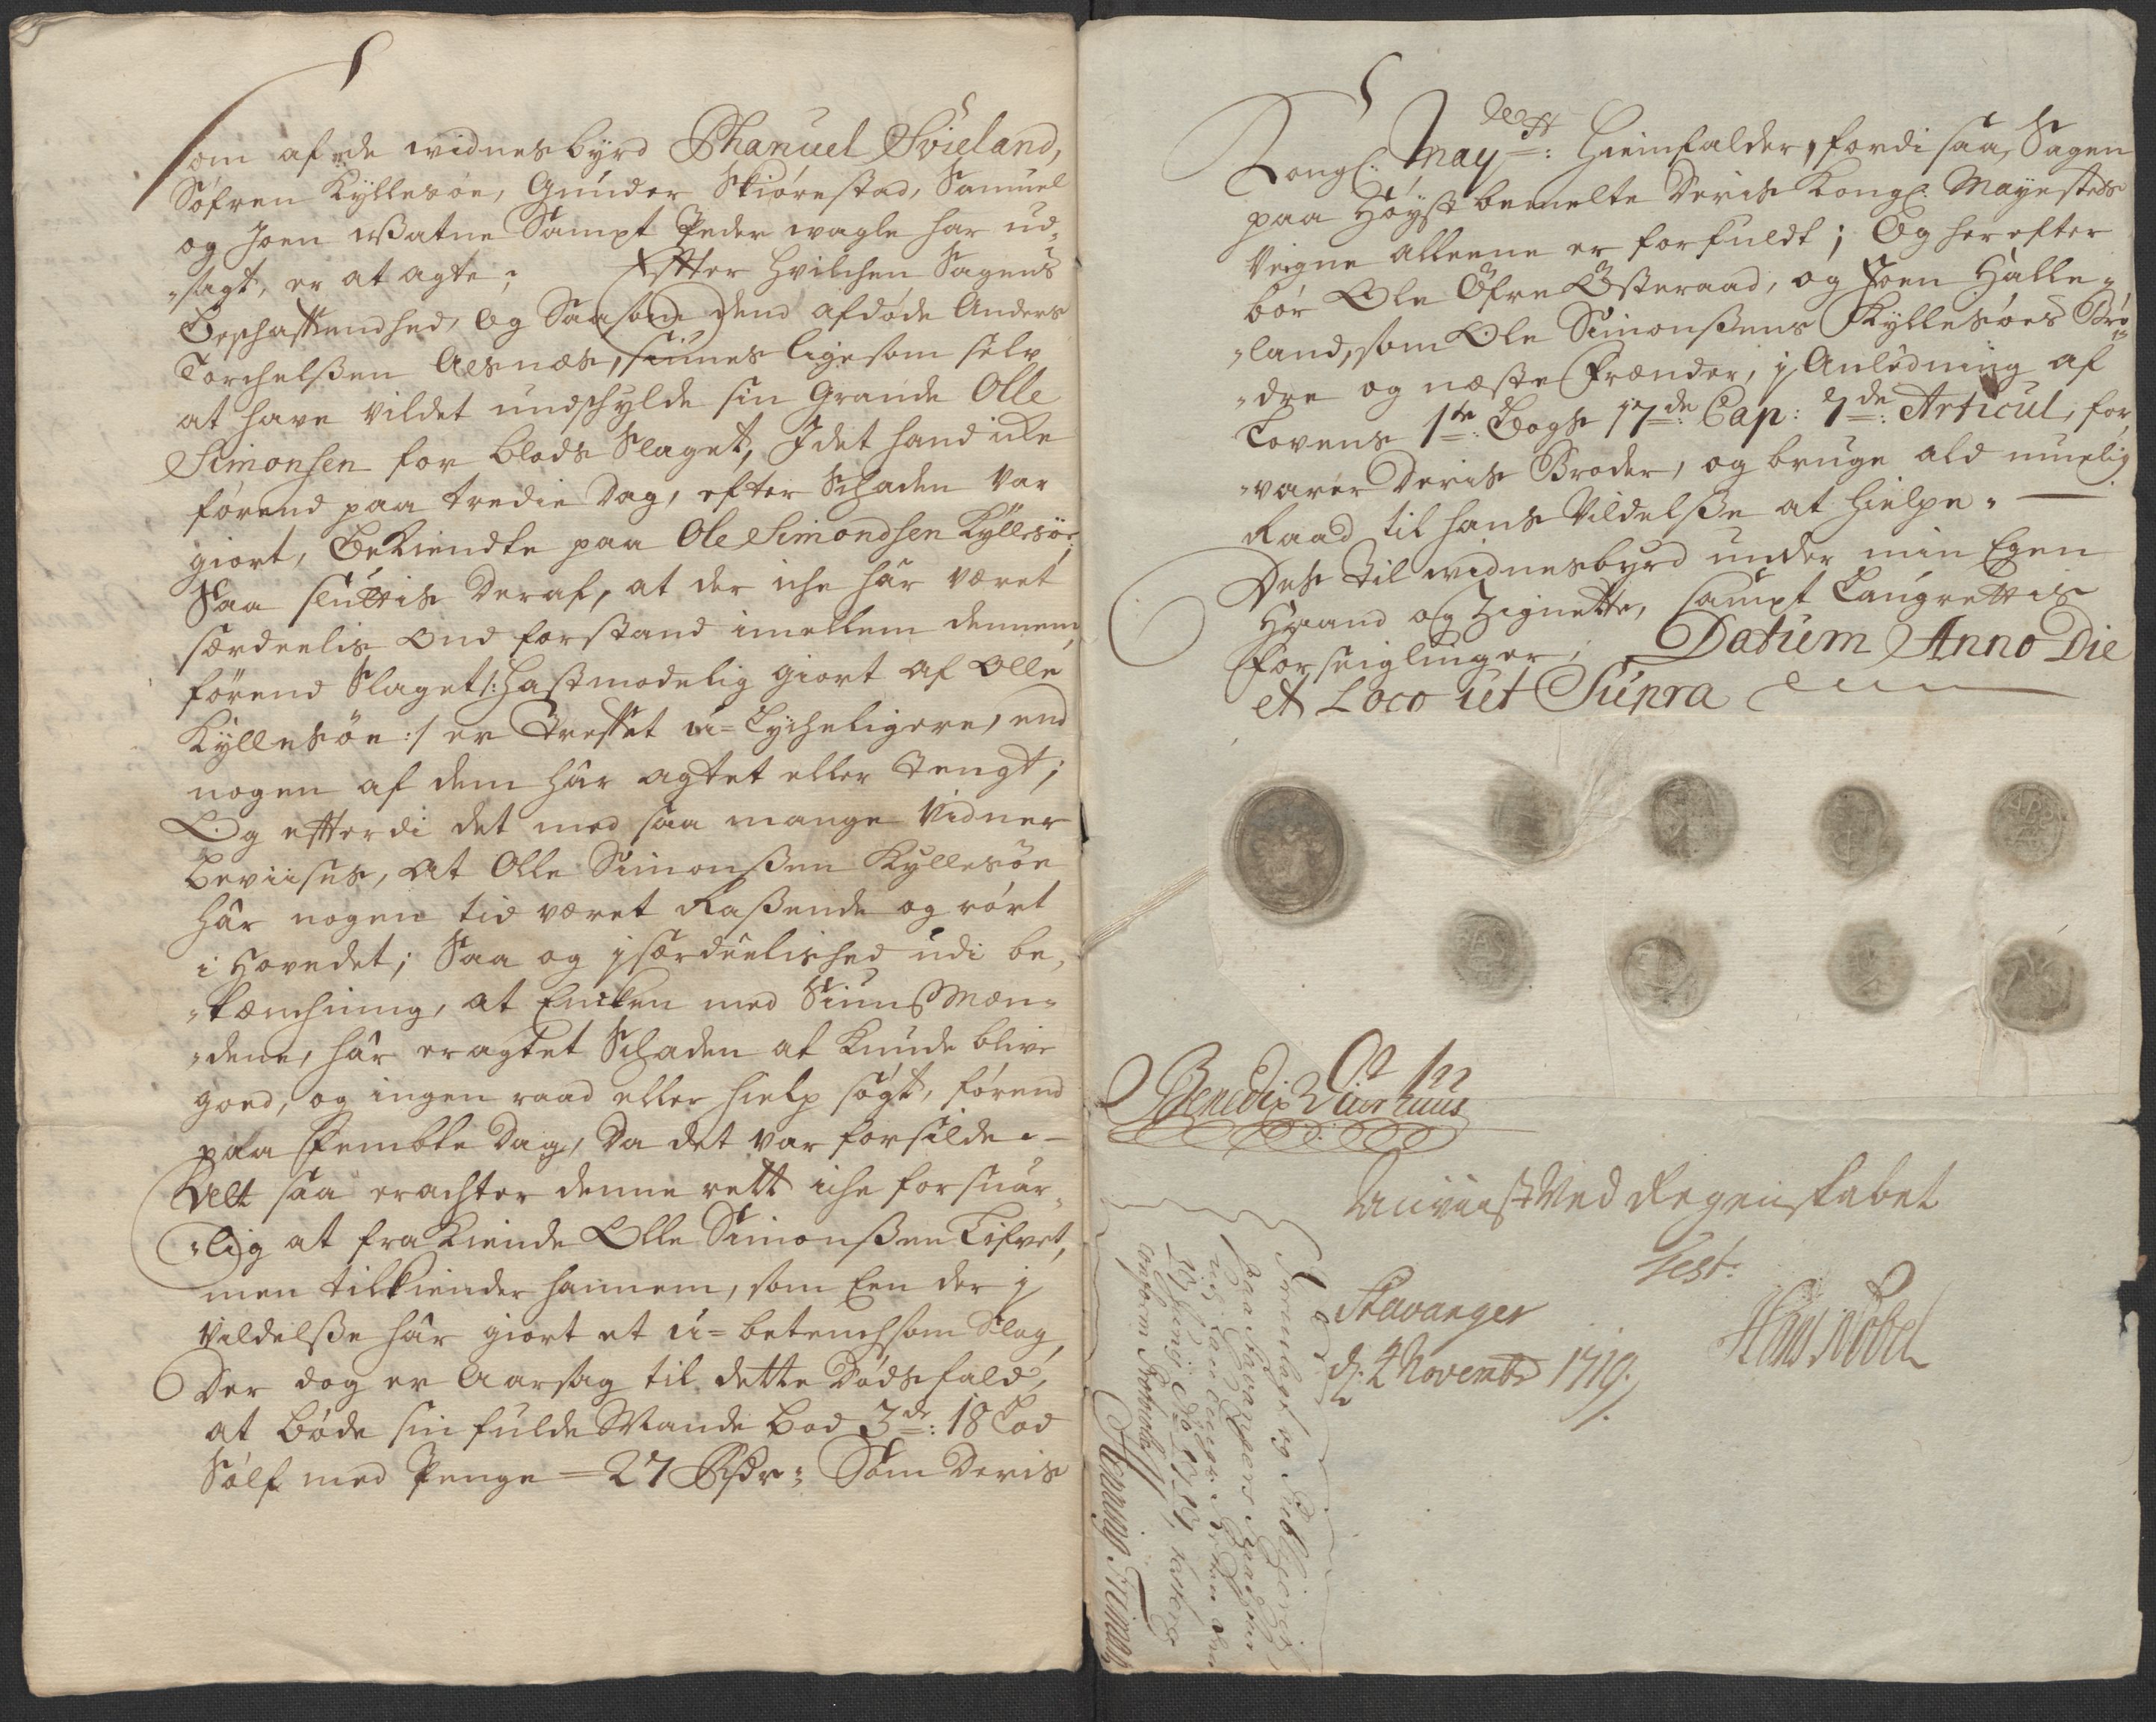 Som af de widnesbyrd Phanuel Svieland,
Söfren Kyllesöe, Gunder Skiörestad, Samuel
og Joen Watne Sampt Peder wagle har ud-
-sagt, er at agte; Efter hvilchen Sagens
Beschaffendhed, og Saasom dend afdöde Anders
Torchelßen Aesnæs, siunes ligesom selv
at have vildet undschylde sin Grande Olle
Simonsen for blods Slaget, Idet hand icke
förend paa tredie Dag, efter Schaden var
giort, Bekiendte paa Ole Simondsen Kyllesöe;
Saa sluttis deraf, at der iche hâr været
særdeelis ond forstand imellem dennem,
förend Slaget /: hastmodelig giort af Olle
Kyllesöe :/ er treffet u=lycheligere, end
nogen af dem hâr agtet eller tengt;
Og efterdi det med saa mange Vidner
beviises, at Olle Simonßen Kyllesöe
hâr nogen tid været Raßende og rört
i Hovedet; Saa og j særdeelished udi be-
-tænchning, at Encken med SiunsMæn-
-dene, hâr eragtet Schaden at kunde blive
goed, og ingen raad eller hielp sögt, förend
paa Fembte Dag, da det var forsilde.
Alt saa erachter denne rett iche forsuar-
-lig at fra Kiende Olle Simonßen Lifvet,
men tilkiender hannem, som Een der j
Vildelße hâr giort et u=betenchsom Slag,
Der dog er Aarsag til dette Dödsfald,
at böde sin fulde Mande bod 3de: 18 Lod
Sölf med Penge = 27 Rdr: Som Deris
Kongl: Mayts: hiemfalder, fordi saa, Sagen
paa Höyst bemelte Deris Kongl. Mayestets
Veigne alleene er forfuldt; Og herefter
bör Ole Öfre Österaad, og Joen Halle-
-land, som Ole Simonßens Kyllesöes Brö-
-dre og næste Frænder, j Anledning af
Lovens 1te: Bogs 17de: Cap: 7de: Articul, for-
-varer deris Broder, og bruge ald muelig
Raad til hans Vildelße at hielpe.
Des til widnesbyrd under min Egen
Haand og Zignette, sampt Laugrettis
Forseiglinger; Datum Anno Die
et Loco ut Supra
Benedix Diurhuus
Anviist ved Regenskabet
Test:
Stavanger
d: 4 Novembr 1719.
Hans Nobel